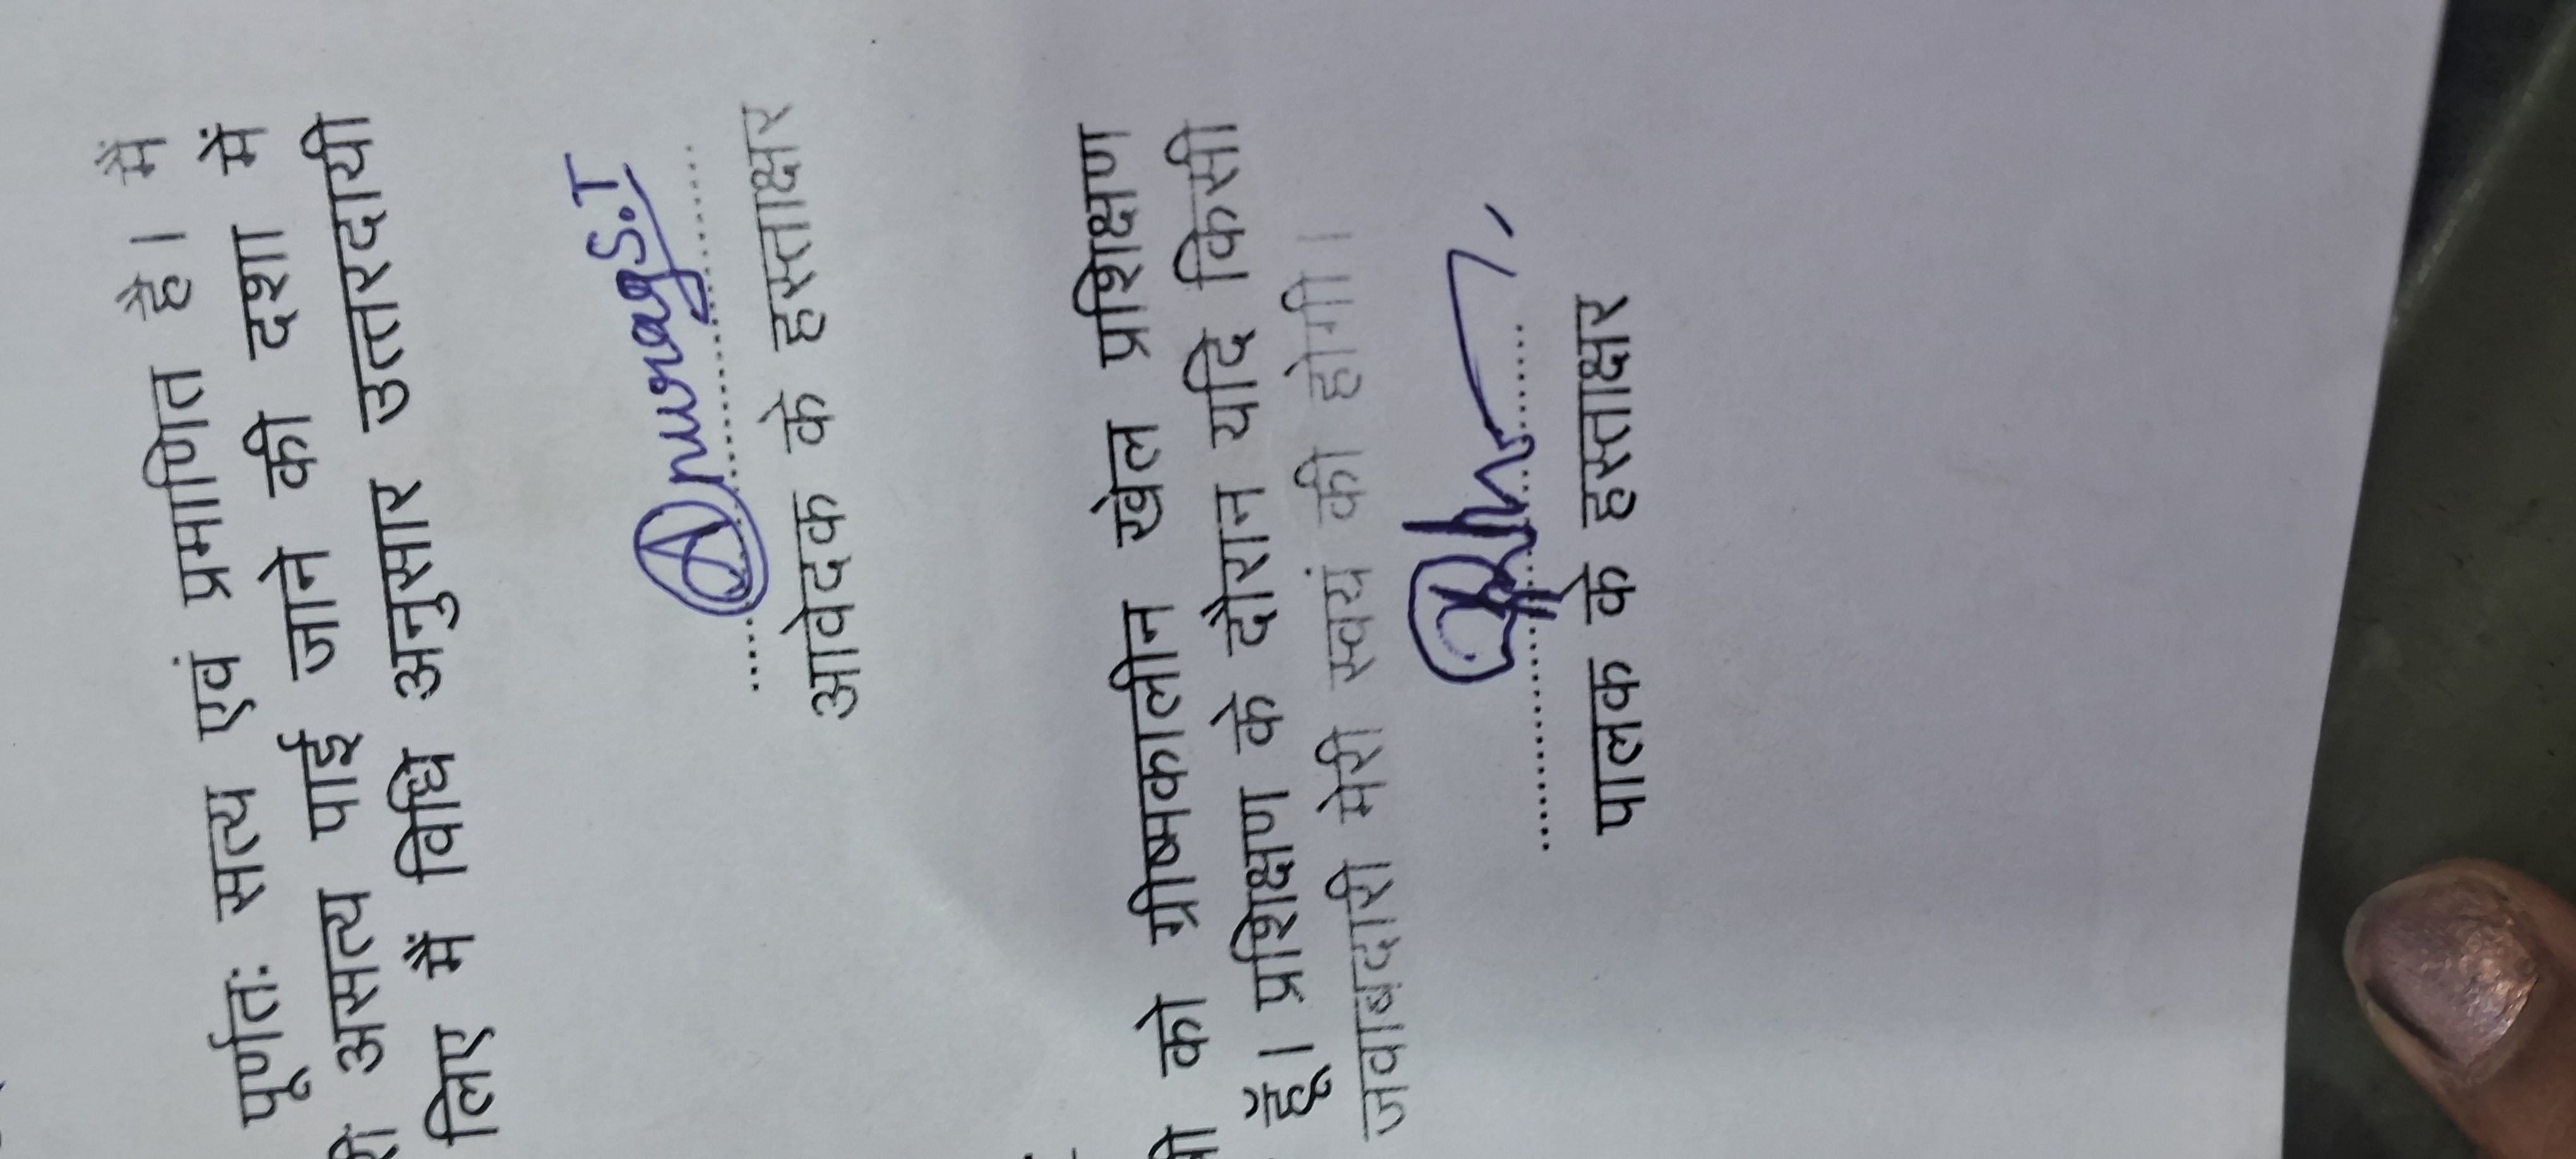 पूर्णतः सत्य एवं प्रमाणित है। मैं
असत्य पाई जाने की दशा में
लिए मैं विधि अनुसार उत्तरदायी
Anurag S.T
आवेदक के हस्ताक्षर
को ग्रीष्मकालीन खेल प्रशिक्षण
हूँ। प्रशिक्षण के दौरान यदि किसी
जवाबदारी मेरी स्वयं की होगी।
पालक के हस्ताक्षर